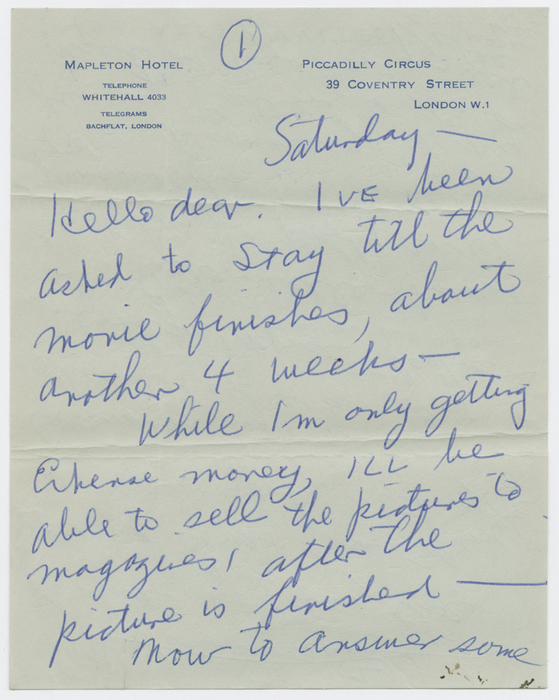 1
MAPLETON HOTEL
TELEPHONE
WHITEHALL 4033
TELEGRAMS
BACHFLAT, LONDON
PICCADILLY CIRCUS
39 COVENTRY STREET
LONDON W.1
Saturday —
Hello dear. I've been
asked to stay till the
movie finishes, about
another 4 weeks —
While I'm only getting
Expense money, I'll be
able to sell the pictures to
magazines, after the
picture is finished —
Now to answer some